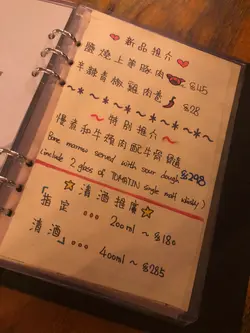 新品推介
醬燒上等豚肉 $45
半熟香嫩雞肉卷 $28
特別推介
慢煮和牛殘肉釀牛骨髓 $298
Bone marrow served with sour dough
(include 2 glass of TOMATIN single malt whisky!)
清酒推廣
「指定 ... 200ml ~ $180
清酒」... 400ml ~ $285